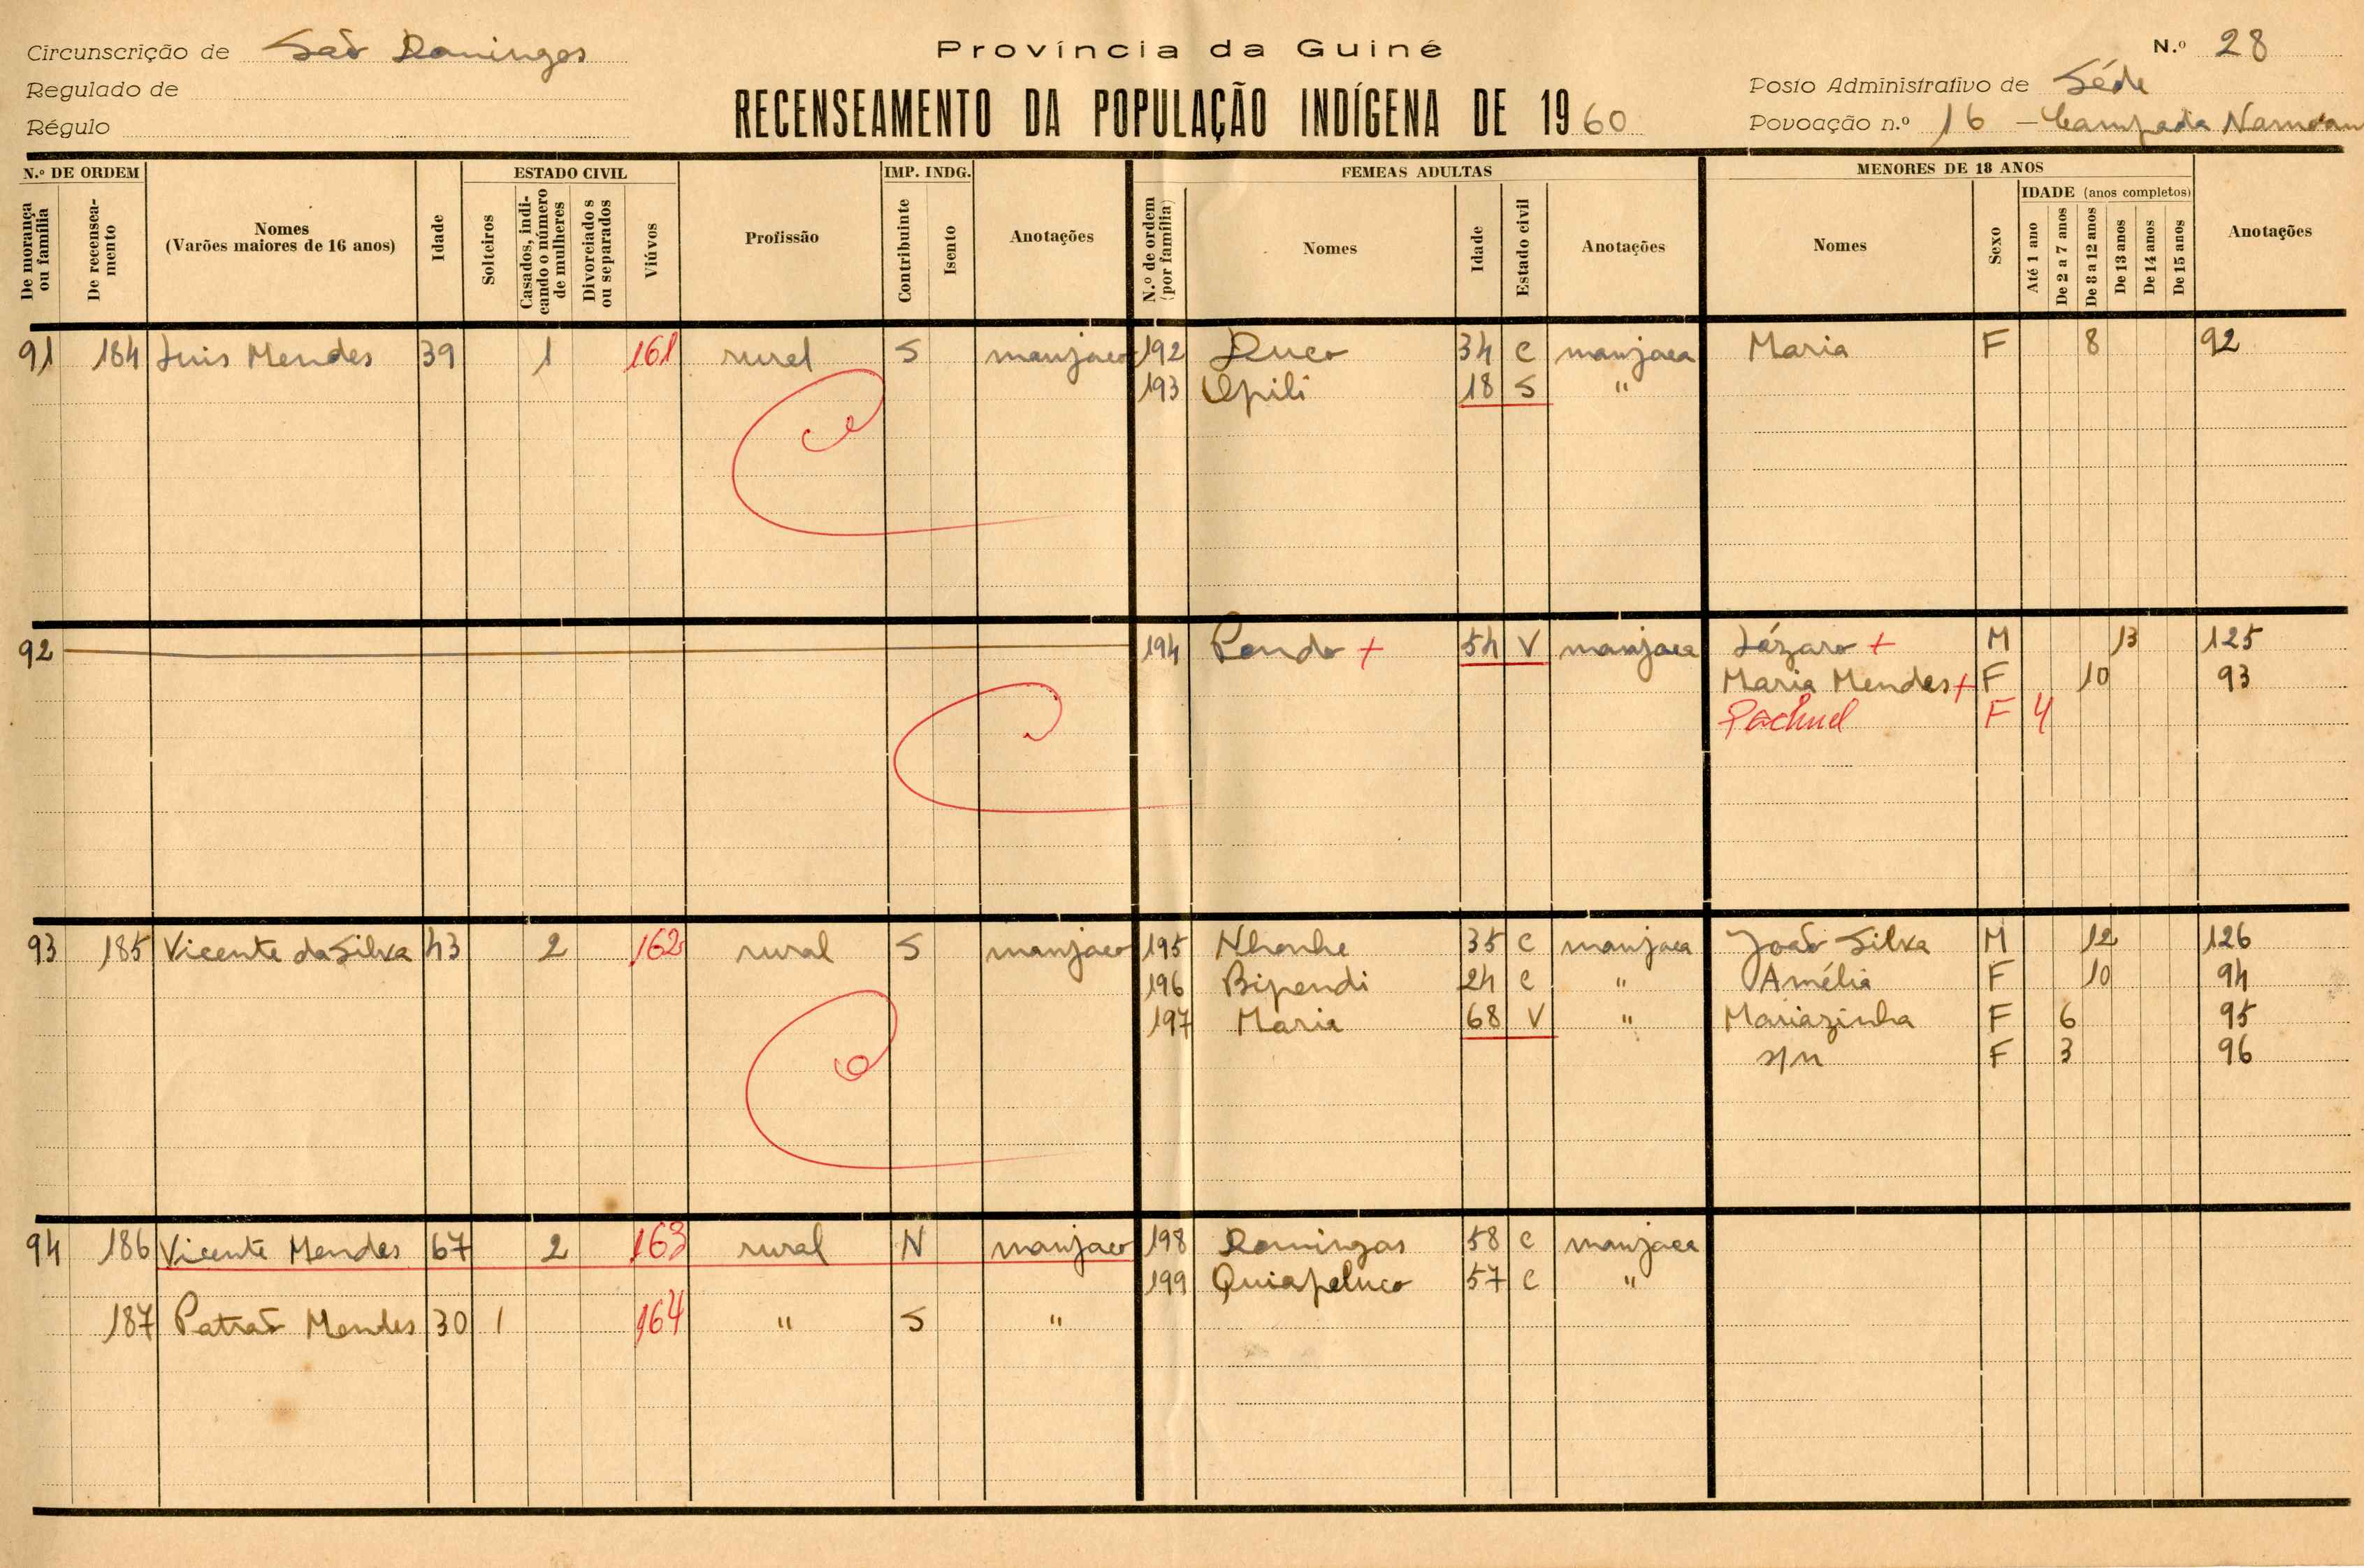 Circunscrição de São Domingos
Regulado de
Régulo
Província da Guiné
RECENSEAMENTO DA POPULAÇÃO INDÍGENA DE 1960
N.º 28
Posto Administrativo de Séde
Povoação n.º 16 - Campada
N.º DE ORDEM
De morança ou família
De recensea-mento
Nomes
(Varões maiores de 16 anos)
Idade
ESTADO CIVIL
Solteiros
Casados, indi-cando o número de mulheres
Divorciados ou separados
Viúvos
Profissão
IMP. INDG.
Contribuinte
Isento
Anotações
FEMEAS ADULTAS
N.º de ordem (por família)
Nomes
Idade
Estado civil
Anotações
MENORES DE 18 ANOS
Nomes
Sexo
IDADE (anos completos)
Até 1 ano
De 2 a 7 anos
De 8 a 12 anos
De 13 anos
De 14 anos
De 15 anos
Anotações
91 184 Luis Mendes 39 1 161 rural S manjaco 192 Duco 34 C manjaca Maria F 8 92
193 Opili 18 S "
92 194 Pondo + 54 V manjaca Lázaro + M 13 125
Maria Mendes + F 10 93
F 4
93 185 Vicente da Silva 43 2 162 rural S manjaco 195 Nhonhe 35 C manjaca João Silva M 12 126
196 Bipendi 24 C " Amélia F 10 94
197 Maria 68 V " Mariazinha F 6 95
s/n F 3 96
94 186 Vicente Mendes 67 2 163 rural N manjaco 198 Domingas 58 C manjaca
199 Quiapeluco 57 C "
187 Patrão Mendes 30 1 164 " S "